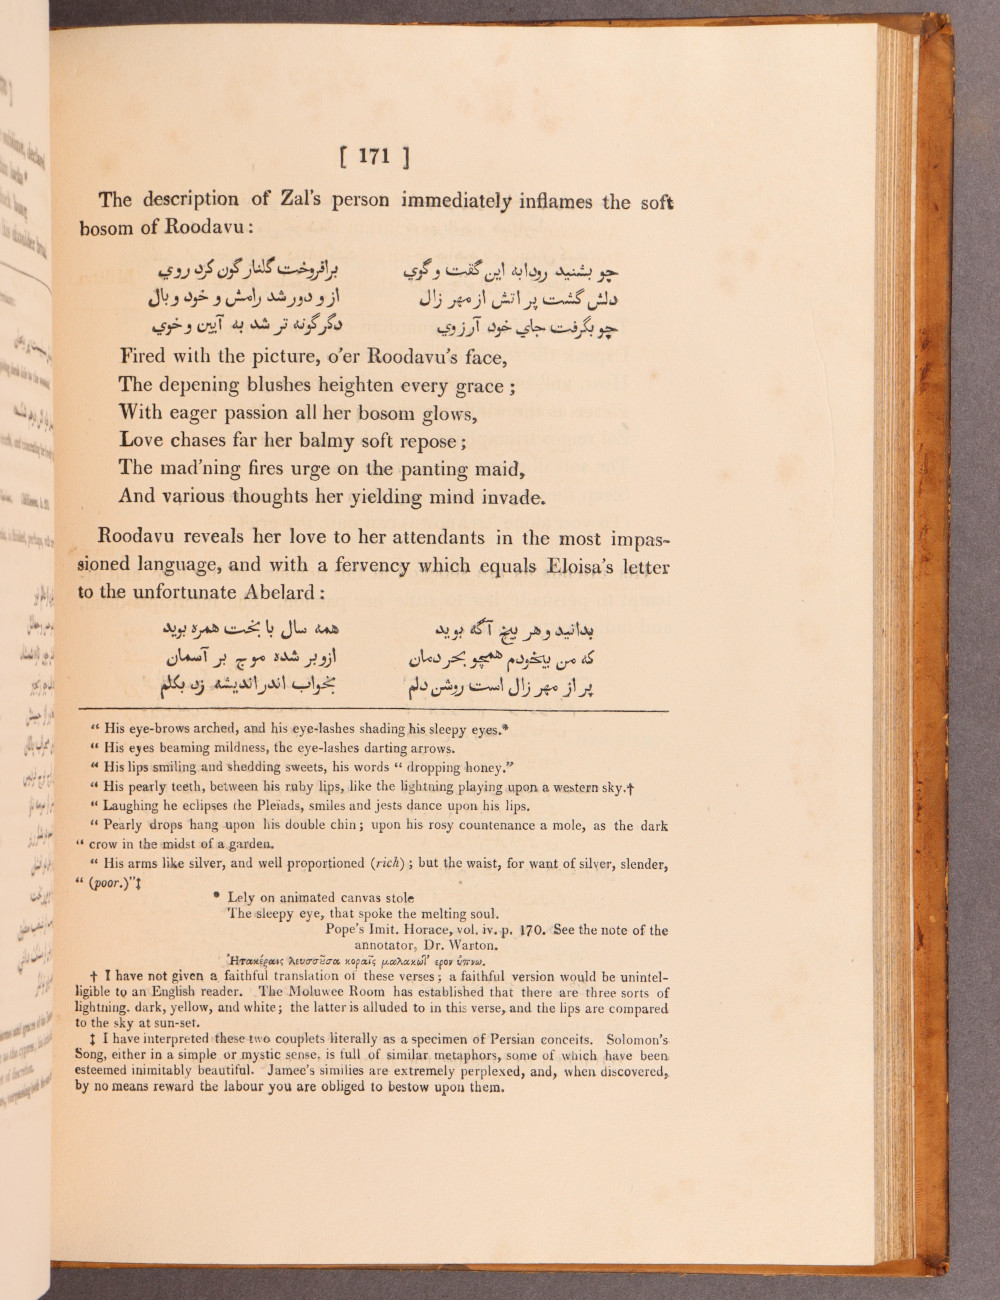 [ 171 ]
The description of Zal's person immediately inflames the soft
bosom of Roodavu :
چو بشنيد رودابه اين گفت و گوي برافروخت گلنار گون كرد روي
دلش گشت پر اتش از مهر زال ازو دور شد رامش و خود و بال
چو بگرفت جاي خود آرزوي دگرگونه تر شد به آيين و خوي
Fired with the picture, o'er Roodavu's face,
The depening blushes heighten every grace ;
With eager passion all her bosom glows,
Love chases far her balmy soft repose ;
The mad'ning fires urge on the panting maid,
And various thoughts her yielding mind invade.
Roodavu reveals her love to her attendants in the most impas-
sioned language, and with a fervency which equals Eloisa's letter
to the unfortunate Abelard :
بدانيد و هر پنج آگه بويد همه سال با بخت همره بويد
كه من بيخودم همچو بحر دمان ازو بر شده موج بر آسمان
پر از مهر زال است روشن دلم بخواب اندر انديشه زد بكلم
“ His eye-brows arched, and his eye-lashes shading his sleepy eyes.*
“ His eyes beaming mildness, the eye-lashes darting arrows.
“ His lips smiling and shedding sweets, his words “ dropping honey.”
“ His pearly teeth, between his ruby lips, like the lightning playing upon a western sky.†
“ Laughing he eclipses the Pleiads, smiles and jests dance upon his lips.
“ Pearly drops hang upon his double chin ; upon his rosy countenance a mole, as the dark
“ crow in the midst of a garden.
“ His arms like silver, and well proportioned (rich) ; but the waist, for want of silver, slender,
“ (poor.)”‡
* Lely on animated canvas stole
The sleepy eye, that spoke the melting soul.
Pope's Imit. Horace, vol. iv. p. 170. See the note of the
annotator, Dr. Warton.
κοραῖς ὑπνω.
† I have not given a faithful translation of these verses ; a faithful version would be unintel-
ligible to an English reader. The Moluwee Room has established that there are three sorts of
lightning. dark, yellow, and white ; the latter is alluded to in this verse, and the lips are compared
to the sky at sun-set.
‡ I have interpreted these two couplets literally as a specimen of Persian conceits. Solomon's
Song, either in a simple or mystic sense, is full of similar metaphors, some of which have been
esteemed inimitably beautiful. Jamee's similies are extremely perplexed, and, when discovered,
by no means reward the labour you are obliged to bestow upon them.